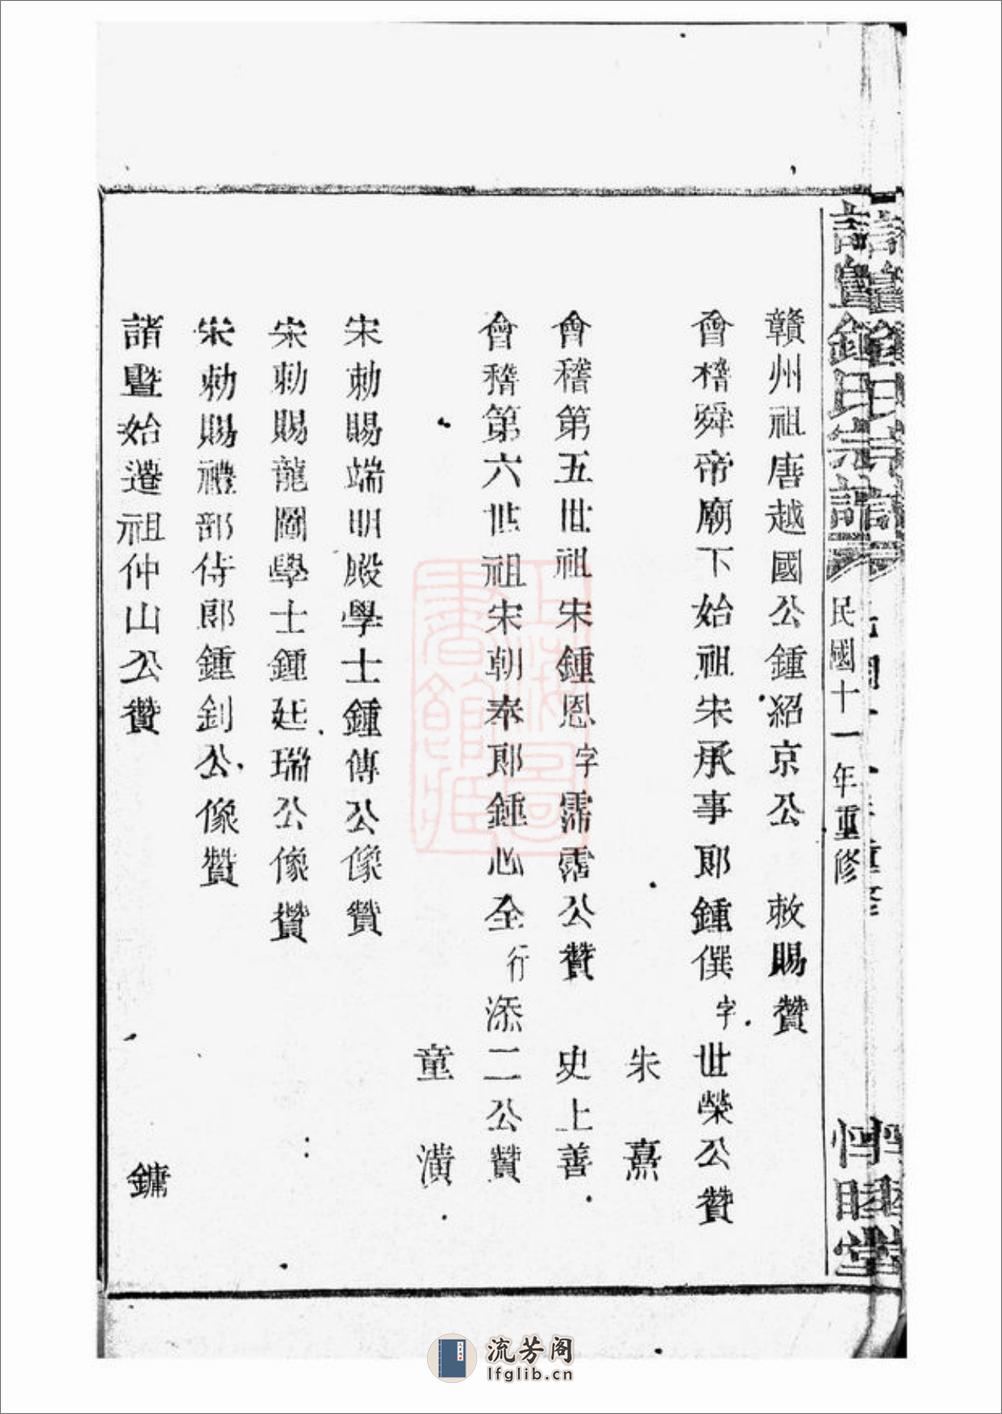 諸暨鍾氏宗譜 民國十一年重修 惇睦堂
贛州祖唐越國公鍾紹京公 敕賜贊
會稽舜帝廟下始祖宋承事郎鍾僎字世榮公贊
朱熹
會稽第五世祖宋鍾恩字濡霑公贊 史上善
會稽第六世祖宋朝奉郎鍾心全行添二公贊
童潢
宋勅賜端明殿學士鍾傳公像贊
宋勅賜龍圖學士鍾廷瑞公像贊
宋勅賜禮部侍郎鍾釗公像贊
諸暨始遷祖仲山公贊 鏞
上海圖書館藏
流芳阁
lfglib.cn